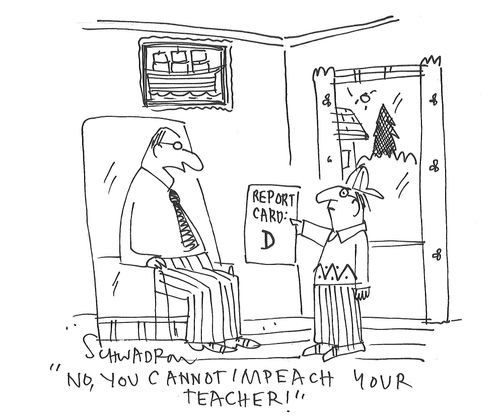 REPORT
CARD:
D
SCHWADRON
"NO, YOU CANNOT IMPEACH YOUR
TEACHER!"